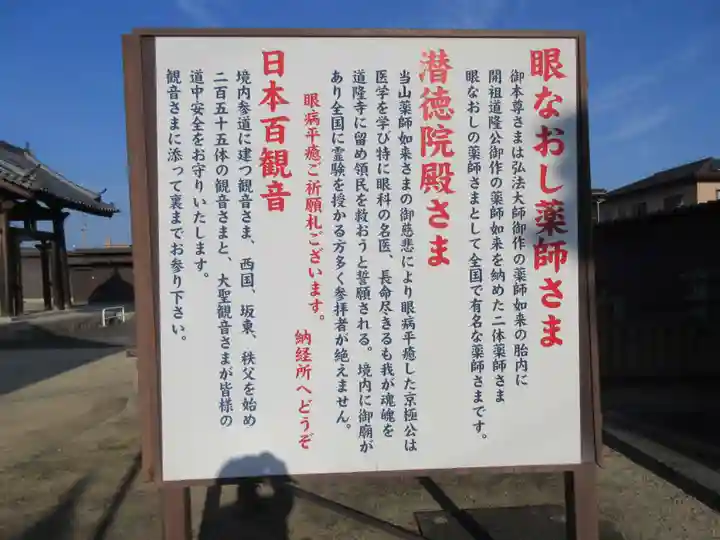 眼なおし薬師さま
御本尊さまは弘法大師御作の薬師如来の胎内に
開祖道隆公御作の薬師如来を納めた二体薬師さま
眼なおしの薬師さまとして全国で有名な薬師さまです。
潜徳院殿さま
当山薬師如来さまの御慈悲により眼病平癒した京極公は
医学を学び特に眼科の名医、長命尽きるも我が魂魄を
道隆寺に留め領民を救おうと誓願される。境内に御廟が
あり全国に霊験を授かる方多く参拝者が絶えません。
眼病平癒ご祈願札ございます。 納経所へどうぞ
日本百観音
境内参道に建つ観音さま、西国、坂東、秩父を始め
二百五十五体の観音さまと、大聖観音さまが皆様の
道中安全をお守りいたします。
観音さまに添って裏までお参り下さい。